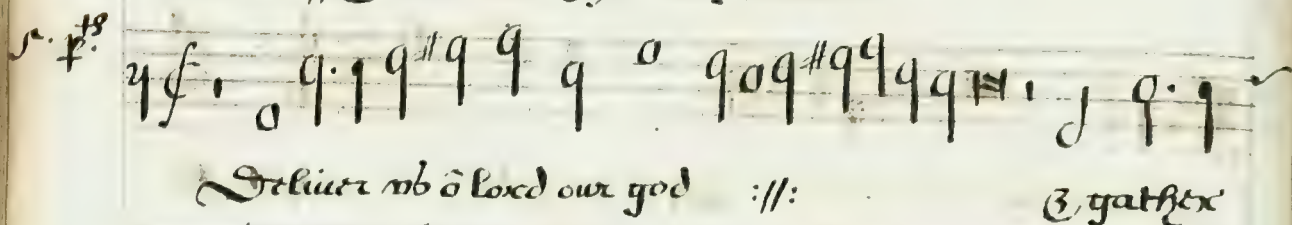 Deliuer vs ō lord our god :||: & gather